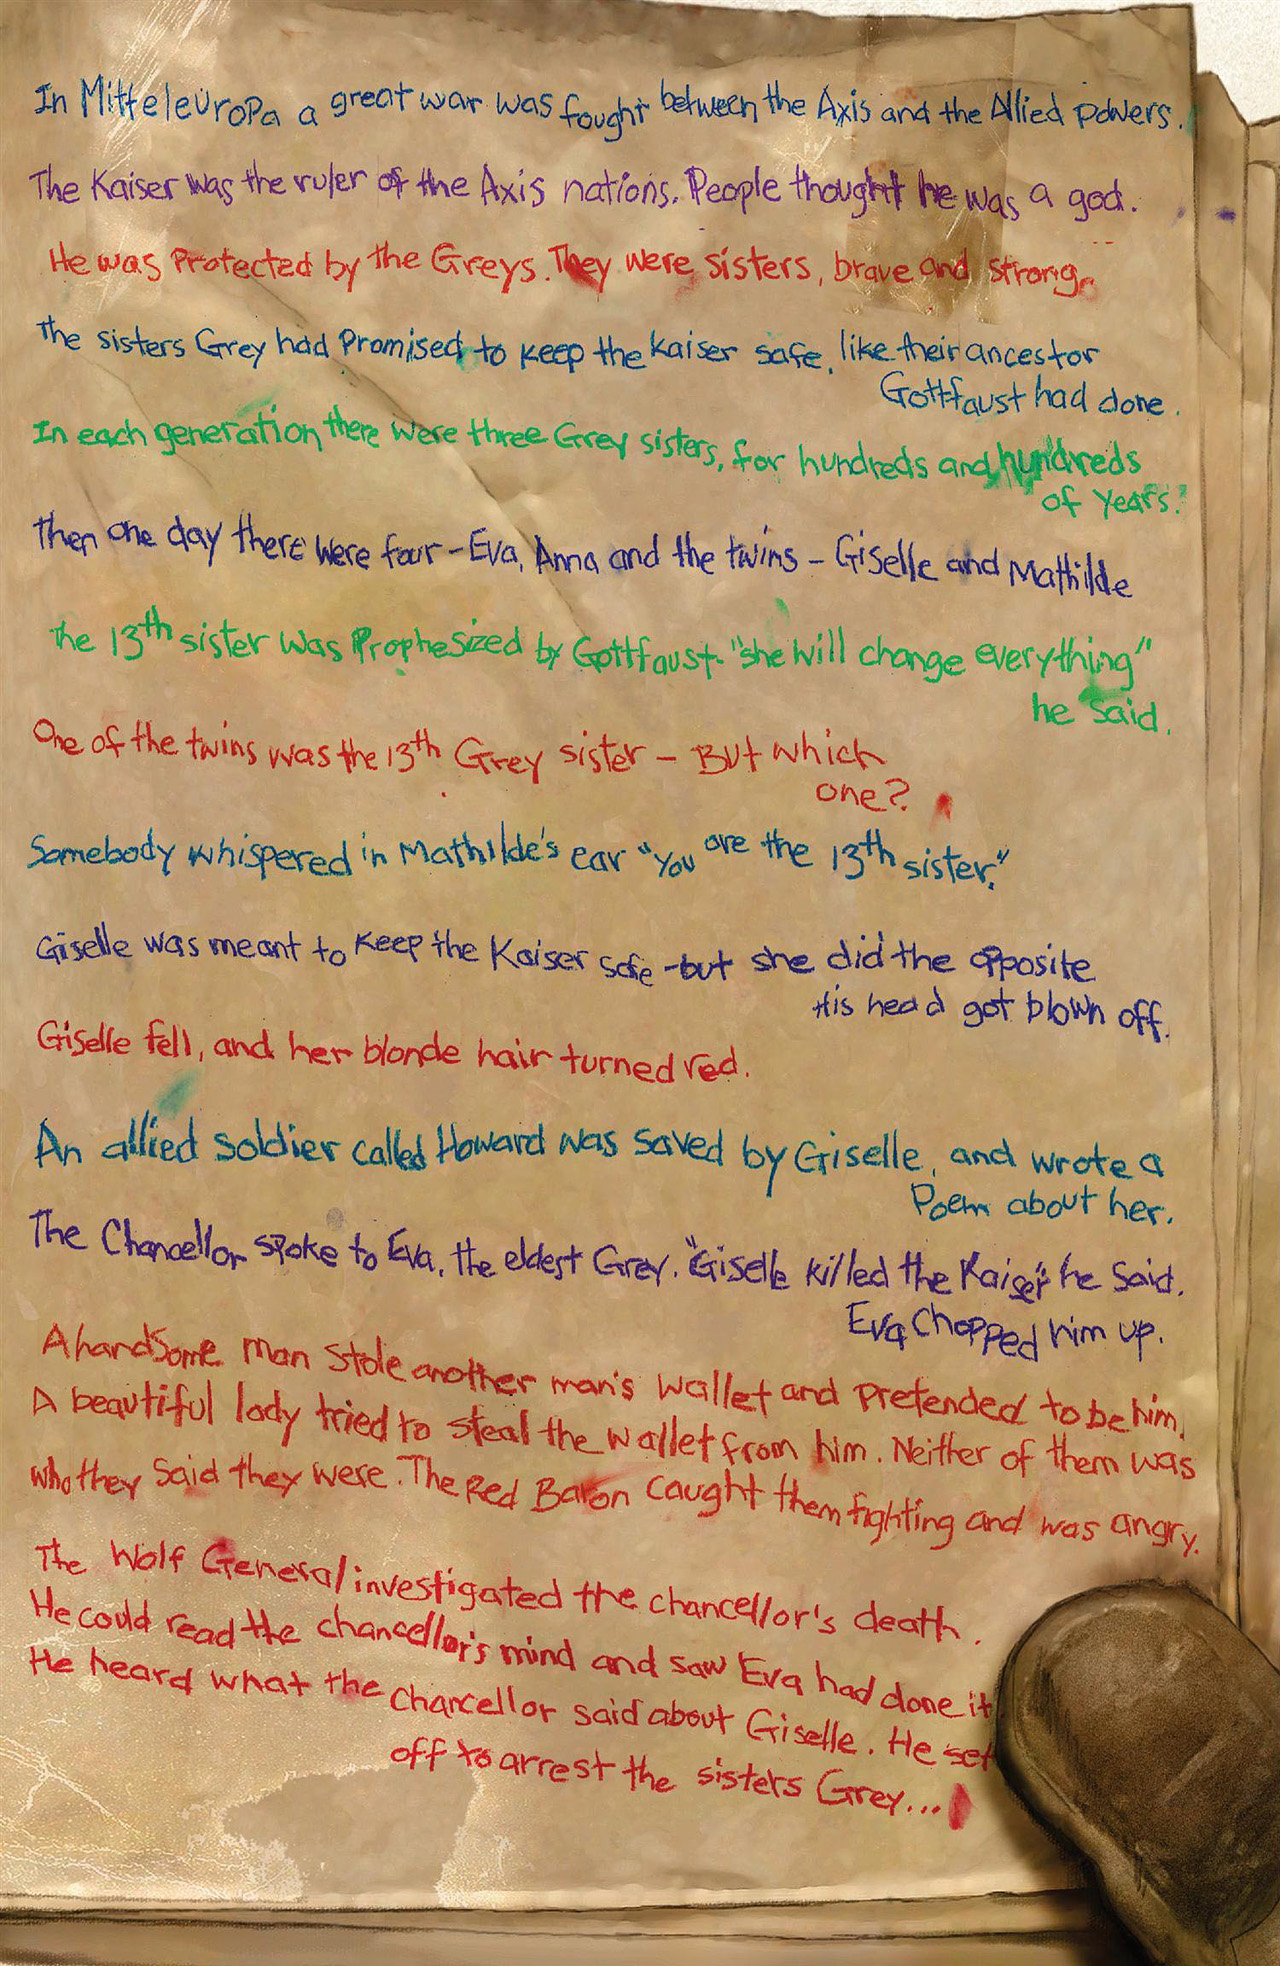 In Mitteleuropa a great war was fought between the Axis and the Allied powers.
The Kaiser was the ruler of the Axis nations. People thought he was a god.
He was Protected by the Greys. They were sisters, brave and strong.
The sisters Grey had Promised to keep the kaiser safe, like their ancestor
Gottfaust had done.
In each generation there were three Grey sisters, for hundreds and hundreds
of years.
Then one day there were four - Eva, Anna and the twins - Giselle and Mathilde
The 13th sister was Prophesized by Gottfaust. "she will change everything"
he said.
One of the twins was the 13th Grey sister - But which
one?
Somebody whispered in Mathilde's ear "You are the 13th sister."
Giselle was meant to keep the Kaiser safe - but she did the opposite
His head got blown off.
Giselle fell, and her blonde hair turned red.
An allied soldier called Howard was saved by Giselle, and wrote a
Poem about her.
The Chancellor spoke to Eva, the eldest Grey. "Giselle killed the Kaiser" he said.
Eva Chopped him up.
A handsome man stole another man's wallet and pretended to be him.
A beautiful lady tried to steal the wallet from him. Neither of them was
who they said they were. The Red Baron caught them fighting and was angry.
The Wolf General investigated the chancellor's death.
He could read the chancellor's mind and saw Eva had done it
He heard what the chancellor said about Giselle. He set
off to arrest the sisters Grey...